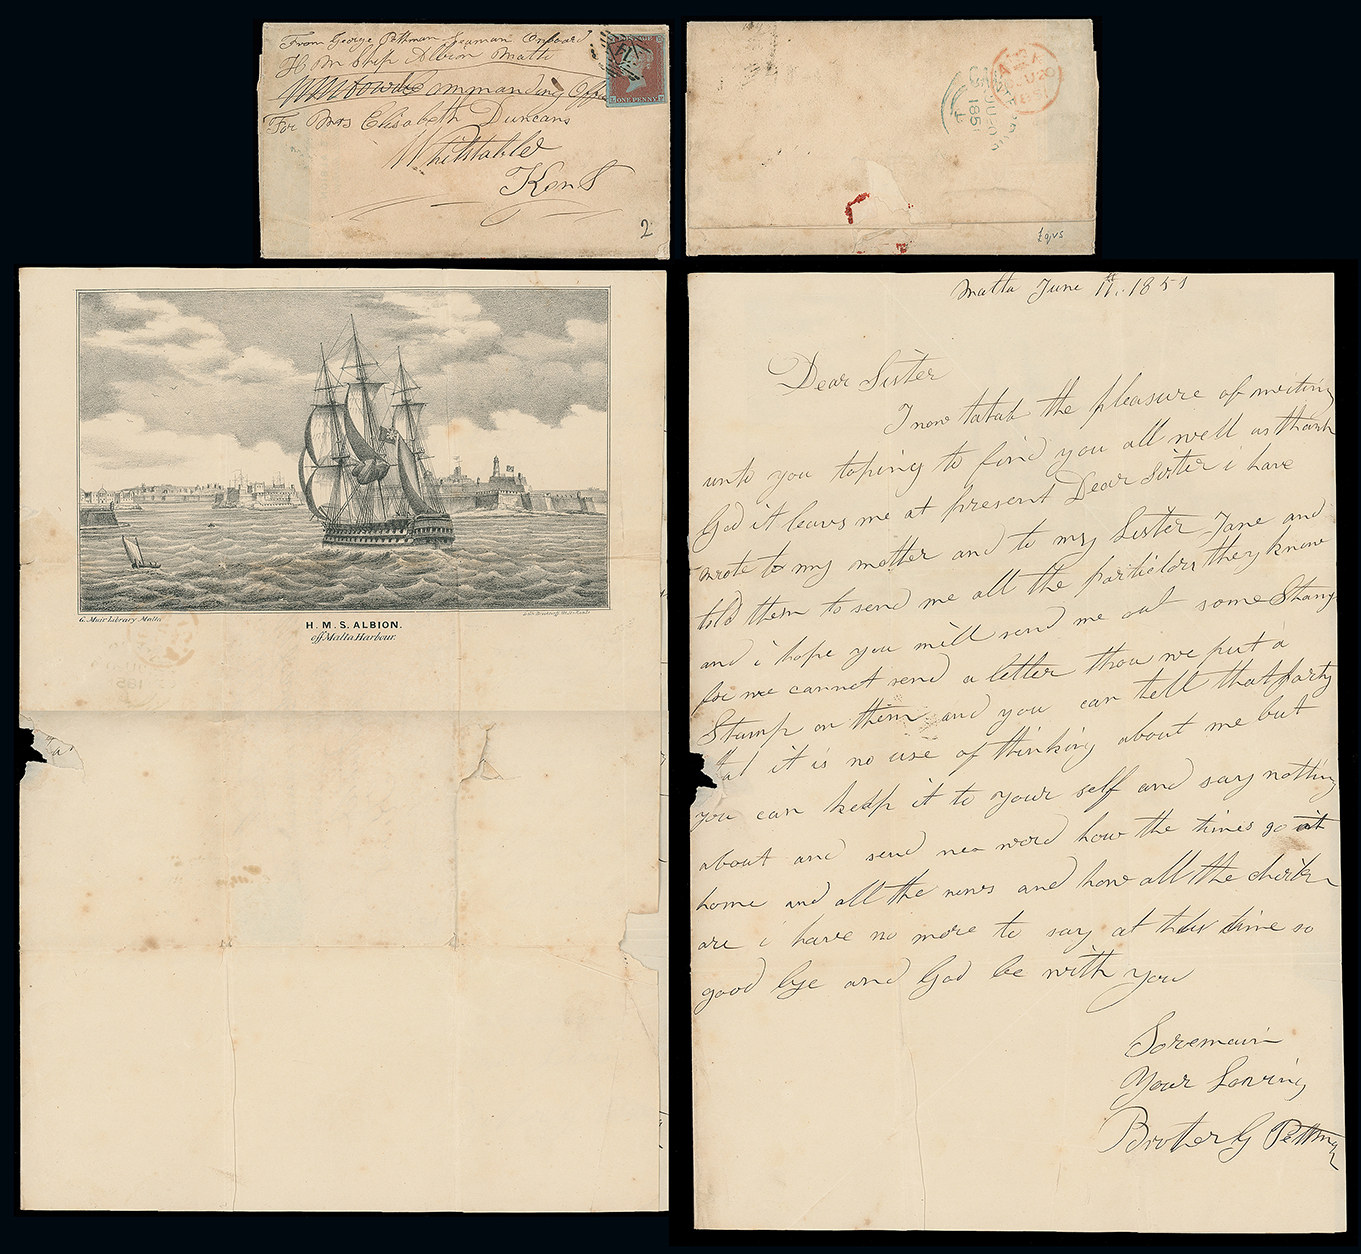 From George Pettman Seaman Onboard
H M Ship Albion Malta
Commanding Officer
For Mrs Elisabeth Duncans
Whitstable
Kent
2
ONE PENNY
CANTERBURY
JU 20
1851
JU 20
1851
G. Muir Library Malta
H. M. S. ALBION.
off Malta Harbour.
Malta June 11th. 1851
Dear Sister
I now tatak the pleasure of writing
unto you toping to find you all well as thank
God it leavs me at present Dear Sister i have
wrote to my mother and to my Sister Jane and
told them to send me all the particlors they know
and i hope you will send me out some Stamps
for we cannot send a letter thou we put a
Stamp on them and you can tell that party
that it is no use of thinking about me but
you can keep it to your self and say nothing
about and send me word how the times go at
home and all the news and how all the
are i have no more to say at this time so
good bye and God be with you
Soremain
Your Loving
Broter G Pettman